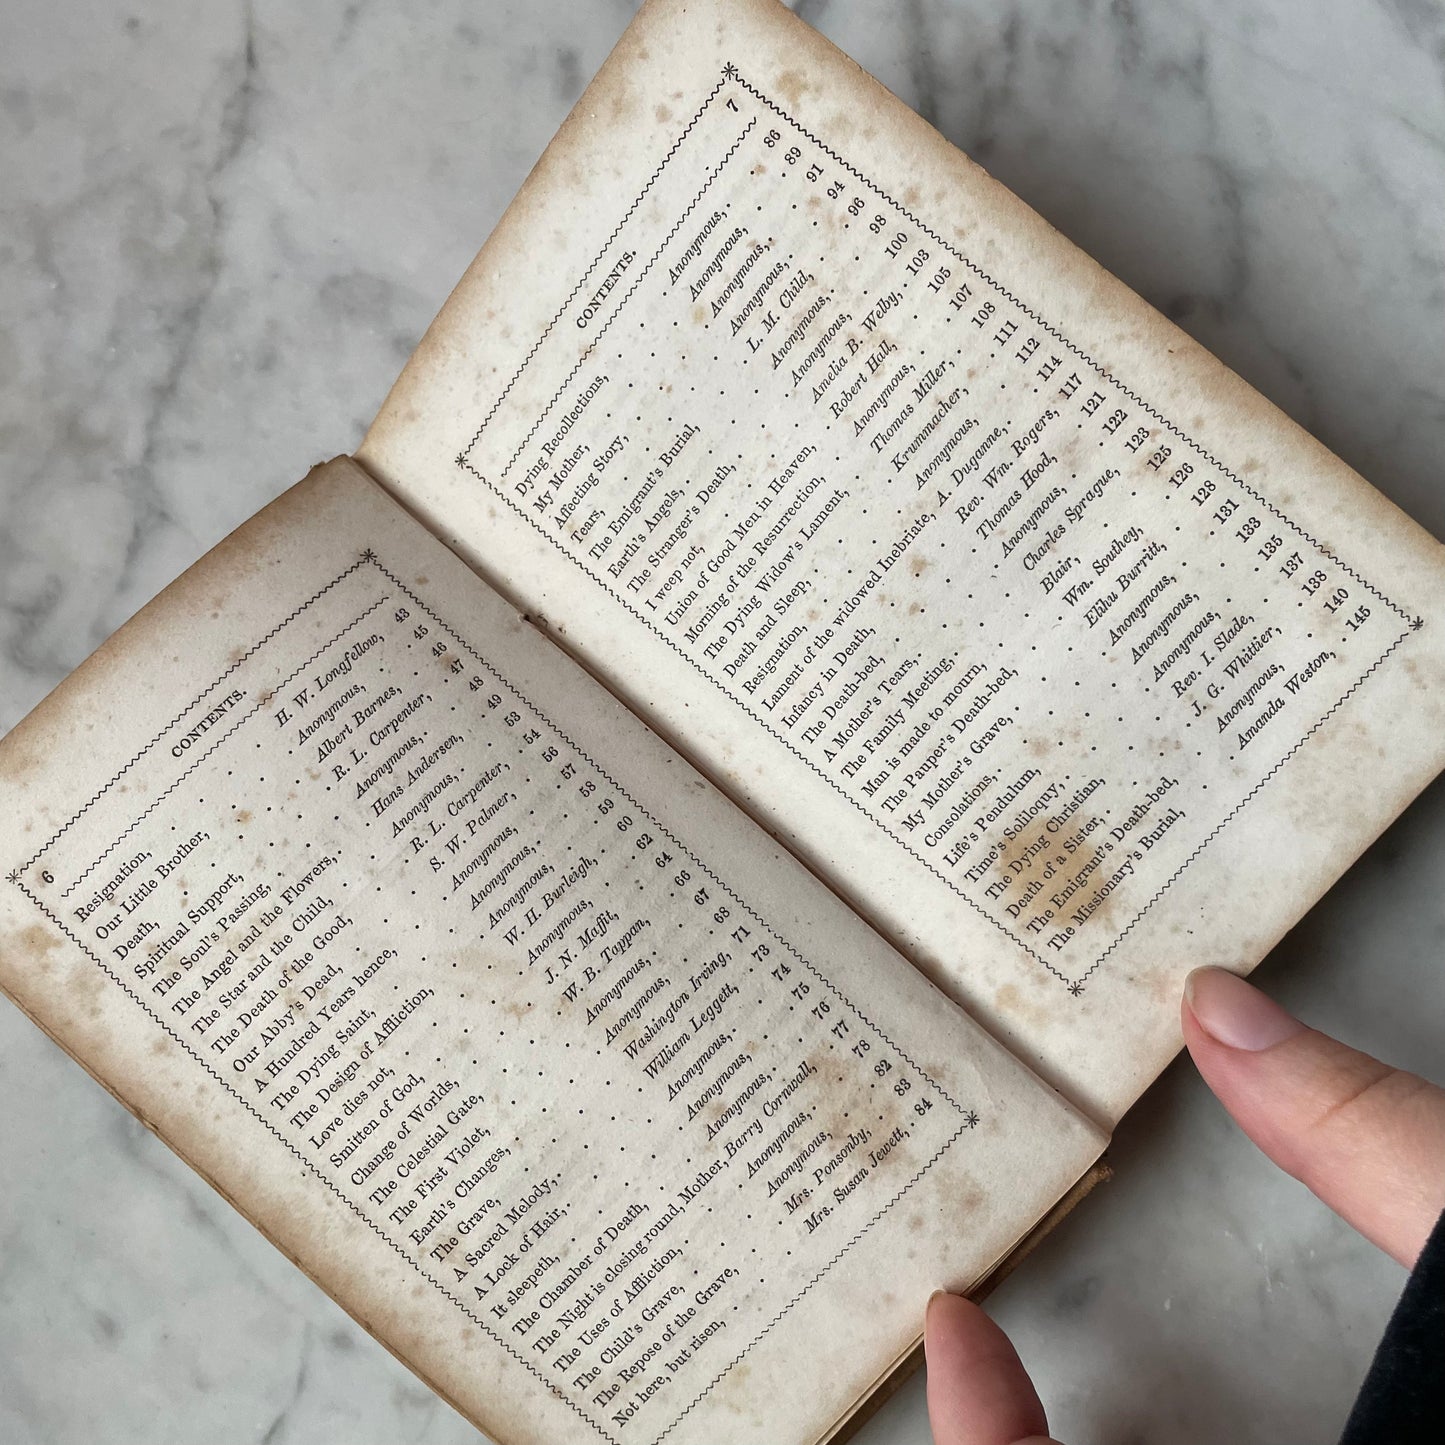 6 CONTENTS.
Resignation, . . H. W. Longfellow, 43
Our Little Brother, . . . Anonymous, . 45
Death, . . . . Albert Barnes, . 46
Spiritual Support, . . . R. L. Carpenter, . 47
The Soul's Passing, . . . Anonymous, . . 48
The Angel and the Flowers, . Hans Andersen, . 49
The Star and the Child, . . Anonymous, . . 53
The Death of the Good, . . R. L. Carpenter, . 54
Our Abby's Dead, . . . S. W. Palmer, . 56
A Hundred Years hence, . . Anonymous, . . 57
The Dying Saint, . . . Anonymous, . . 58
The Design of Affliction, . . Anonymous, . . 59
Love dies not, . . . W. H. Burleigh, . 60
Smitten of God, . . . Anonymous, . . 62
Change of Worlds, . . . J. N. Maffit, . 64
The Celestial Gate, . . . W. B. Tappan, . 66
The First Violet, . . . Anonymous, . . 67
Earth's Changes, . . . Anonymous, . . 68
The Grave, . . . Washington Irving, 71
A Sacred Melody, . . . William Leggett, . 73
A Lock of Hair, . . . Anonymous, . . 74
It sleepeth, . . . Anonymous, . . 75
The Chamber of Death, . . Anonymous, . . 76
The Night is closing round, Mother, Barry Cornwall, . 77
The Uses of Affliction, . . Anonymous, . . 78
The Child's Grave, . . . Anonymous, . . 82
The Repose of the Grave, . . Mrs. Ponsonby, . 83
Not here, but risen, . . . Mrs. Susan Jewett, . 84
CONTENTS. 7
Dying Recollections, . . Anonymous, . . 86
My Mother, . . . Anonymous, . . 89
Affecting Story, . . . Anonymous, . . 91
Tears, . . . Anonymous, . . 94
The Emigrant's Burial, . . L. M. Child, . 96
Earth's Angels, . . . Anonymous, . . 98
The Stranger's Death, . . Anonymous, . . 100
I weep not, . . . Amelia B. Welby, . 103
Union of Good Men in Heaven, . Robert Hall, . 105
Morning of the Resurrection, . Anonymous, . . 107
The Dying Widow's Lament, . Thomas Miller, . 108
Death and Sleep, . . . Krummacher, . . 111
Resignation, . . . Anonymous, . . 112
Lament of the widowed Inebriate, A. Duganne, . 114
Infancy in Death, . . . Rev. Wm. Rogers, . 117
The Death-bed, . . . Thomas Hood, . 121
A Mother's Tears, . . . Anonymous, . . 122
The Family Meeting, . . Charles Sprague, . 123
Man is made to mourn, . . Blair, . . 125
The Pauper's Death-bed, . . Wm. Southey, . 126
My Mother's Grave, . . . Elihu Burritt, . 128
Consolations, . . . Anonymous, . . 131
Life's Pendulum, . . . Anonymous, . . 133
Time's Soliloquy, . . . Anonymous, . . 135
The Dying Christian, . . Rev. I. Slade, . 137
Death of a Sister, . . . J. G. Whittier, . 138
The Emigrant's Death-bed, . . Anonymous, . . 140
The Missionary's Burial, . . Amanda Weston, . 145